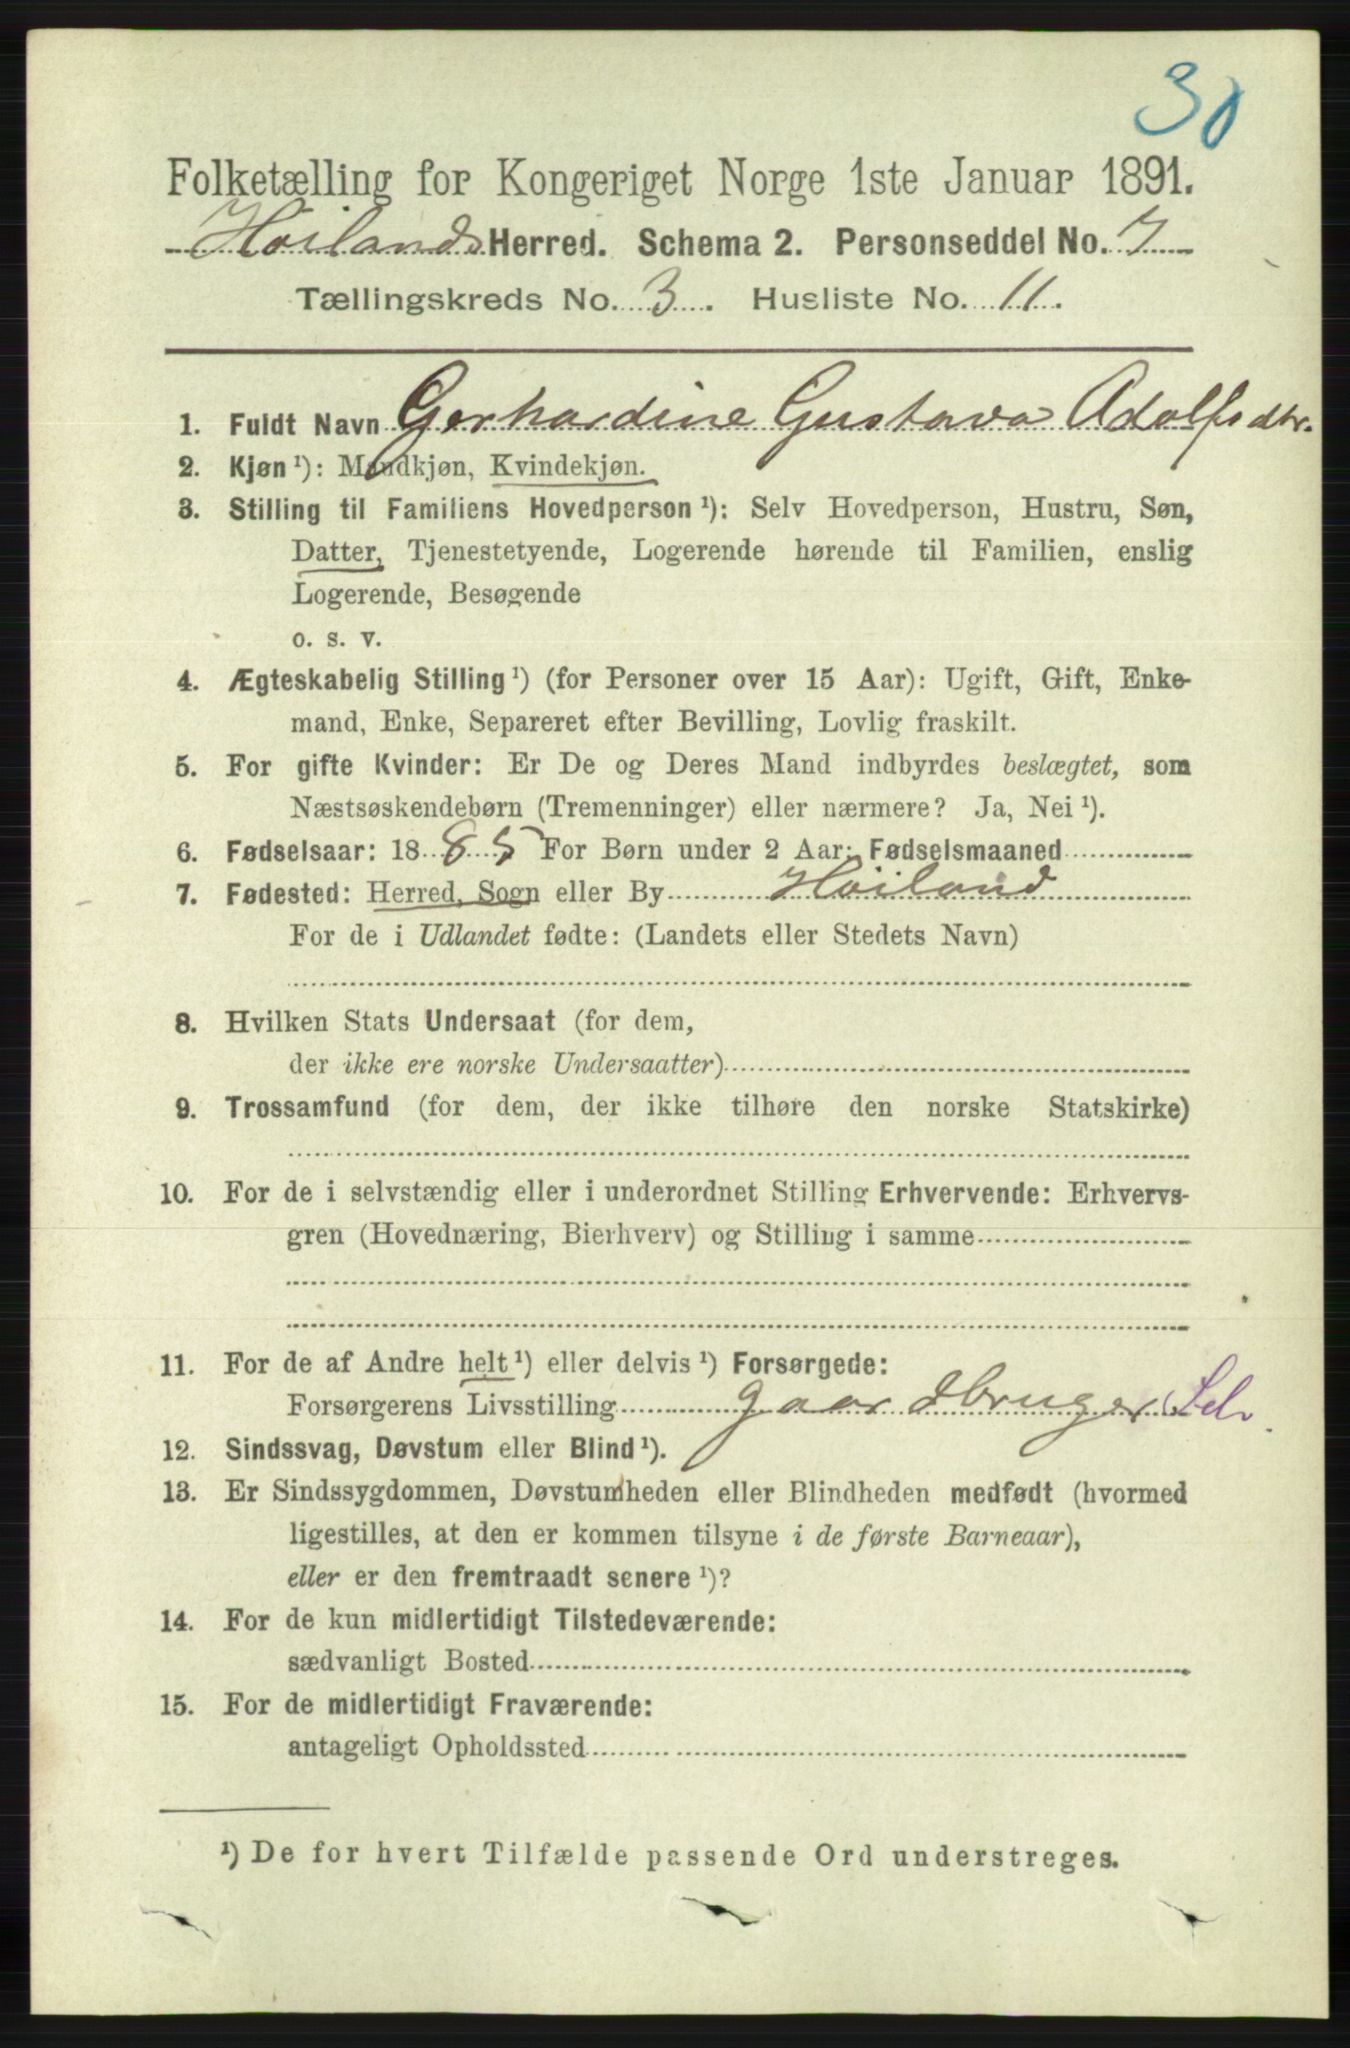 30
Folketælling for Kongeriget Norge 1ste Januar 1891.
Høilands Herred. Schema 2. Personseddel No. 7
Tællingskreds No. 3. Husliste No. 11.
1. Fuldt Navn Gerhardine Gustava Adolfsdtr.
2. Kjøn ¹): Mandkjøn, Kvindekjøn.
3. Stilling til Familiens Hovedperson ¹): Selv Hovedperson, Hustru, Søn,
Datter, Tjenestetyende, Logerende hørende til Familien, enslig
Logerende, Besøgende
o. s. v.
4. Ægteskabelig Stilling ¹) (for Personer over 15 Aar): Ugift, Gift, Enke-
mand, Enke, Separeret efter Bevilling, Lovlig fraskilt.
5. For gifte Kvinder: Er De og Deres Mand indbyrdes beslægtet, som
Næstsøskendebørn (Tremenninger) eller nærmere? Ja, Nei ¹).
6. Fødselsaar: 1885 For Børn under 2 Aar: Fødselsmaaned
7. Fødested: Herred, Sogn eller By Høiland
For de i Udlandet fødte: (Landets eller Stedets Navn)
8. Hvilken Stats Undersaat (for dem,
der ikke ere norske Undersaatter)
9. Trossamfund (for dem, der ikke tilhøre den norske Statskirke)
10. For de i selvstændig eller i underordnet Stilling Erhvervende: Erhvervs-
gren (Hovednæring, Bierhverv) og Stilling i samme
11. For de af Andre helt ¹) eller delvis ¹) Forsørgede:
Forsørgerens Livsstilling gaardbruger Sel.
12. Sindssvag, Døvstum eller Blind ¹).
13. Er Sindssygdommen, Døvstumheden eller Blindheden medfødt (hvormed
ligestilles, at den er kommen tilsyne i de første Barneaar),
eller er den fremtraadt senere ¹)?
14. For de kun midlertidigt Tilstedeværende:
sædvanligt Bosted
15. For de midlertidigt Fraværende:
antageligt Opholdssted
¹) De for hvert Tilfælde passende Ord understreges.